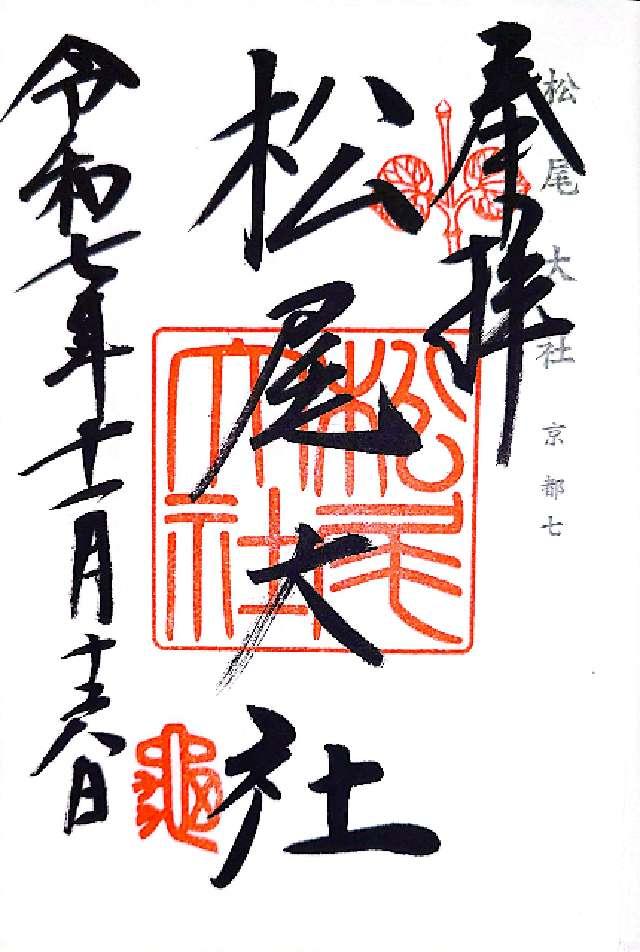 松尾大社 京都七
奉拝
松尾大社
松尾大社
令和七年十一月十六日